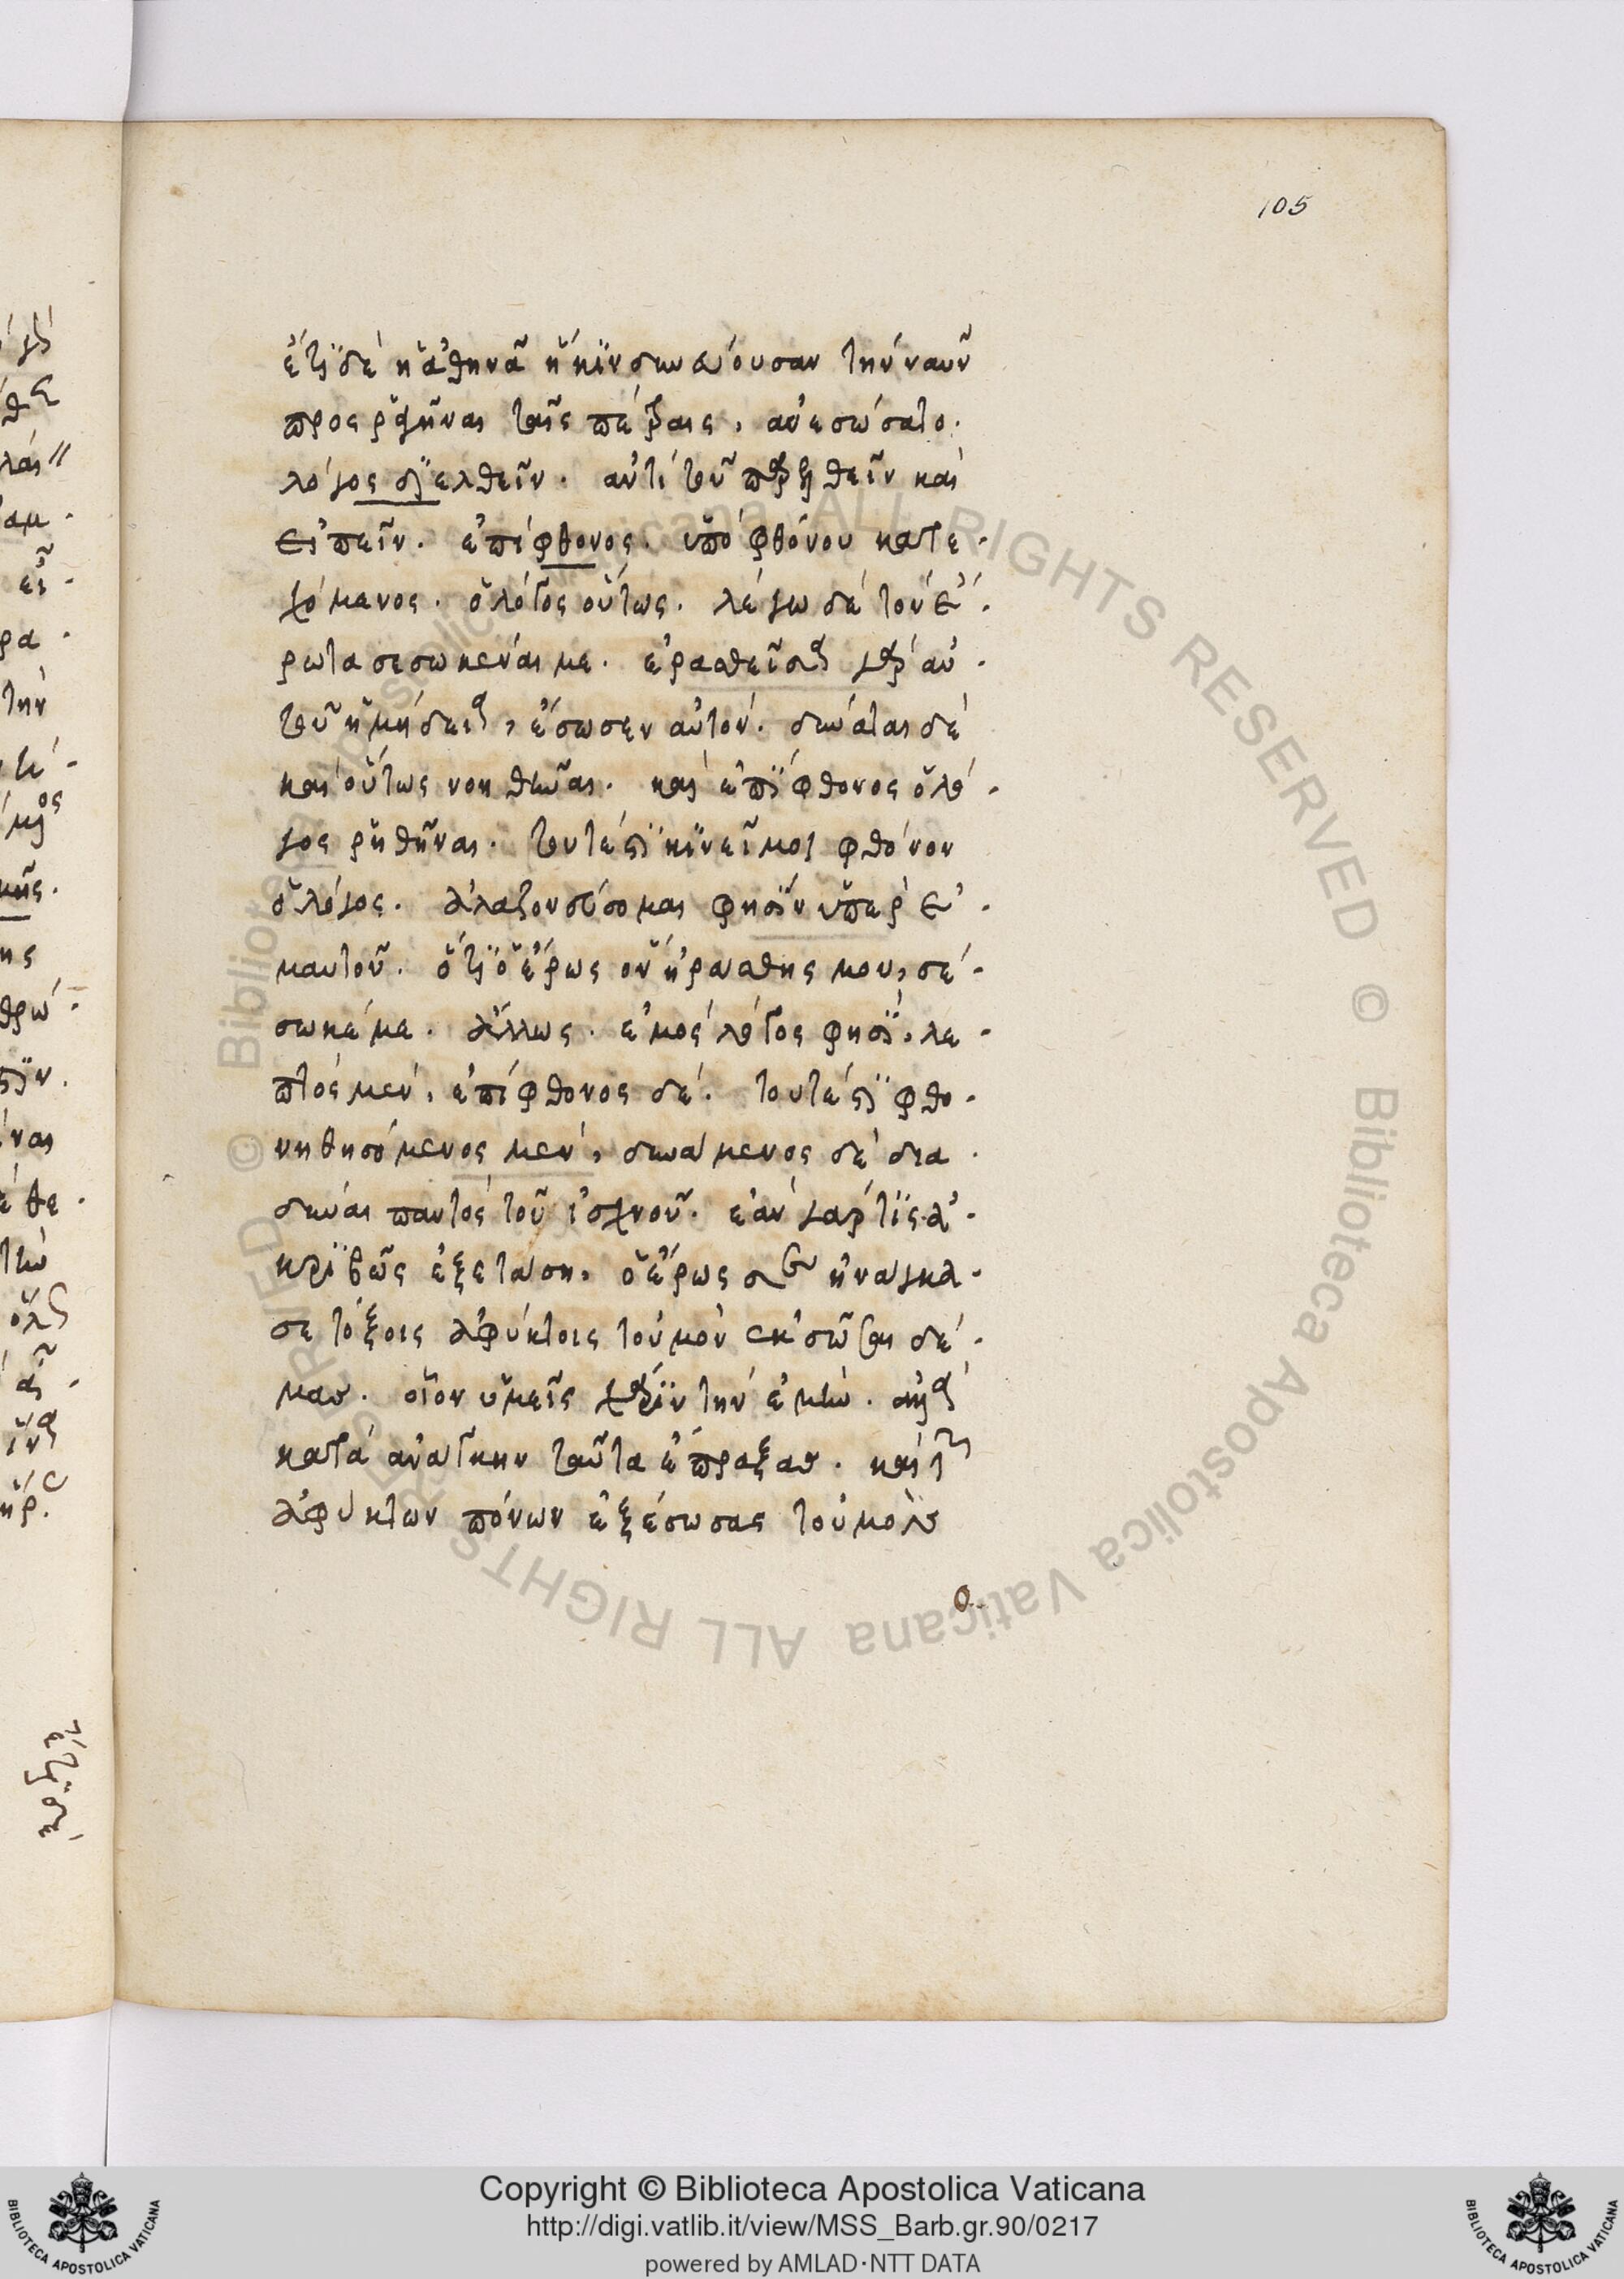 105
ἔτι δὲ ἡ ἀθηνᾶ ἡ κινδυνεύουσαν τὴν ναῦν
προσραγῆναι ταῖς πέτραις, ἀνεσώσατο.
λόγος διελθεῖν. ἀντὶ τοῦ καὶ
εἰπεῖν. ἐπίφθονος. ὑπὸ φθόνου κατε-
χόμενος. ὁ λόγος οὕτως. λέγω δὲ τὸν ἔ-
ρωτα σεσωκέναι με. ἐρασθεῖσα γὰρ αὐ-
τοῦ ἡ μήδεια, ἔσωσεν αὐτόν. δύναται δὲ
καὶ οὕτως νοηθῆναι. καὶ ἐπίφθονος ὁ λό-
γος ῥηθῆναι. τουτέστι κινεῖ μοι φθόνον
ὁ λόγος. ἀλαζονεύσομαι φησὶν ὑπὲρ ἐ-
μαυτοῦ. ὅτι ὁ ἔρως οὗ ἠράσθης μου, σέ-
σωκέ με. ἄλλως. ἐμὸς λόγος φησὶ, λε-
πτὸς μὲν, ἐπίφθονος δέ. τουτέστι φθο-
νηθησόμενος μὲν, δυνάμενος δὲ δια
δῦναι παντὸς τοῦ ἰσχνοῦ. ἐὰν γάρ τις ἀ-
κριβῶς ἐξετάσῃ, ὁ ἔρως σε ἠνάγκα-
σε τόξοις ἀφύκτοις τοὐμὸν ἐκσῶσαι δέ-
μας. οἷον ὑμεῖς χάριν τὴν ἐμὴν.
κατὰ ἀνάγκην ταῦτα ἔπραξας. καὶ
ἀφύκτων πόνων ἐξέσωσας τοὐμὸν
Copyright © Biblioteca Apostolica Vaticana
http://digi.vatlib.it/view/MSS_Barb.gr.90/0217
powered by AMLAD·NTT DATA
BIBLIOTECA APOSTOLICA VATICANA
BIBLIOTECA APOSTOLICA VATICANA
© Biblioteca Apostolica Vaticana ALL RIGHTS RESERVED © Biblioteca Apostolica Vaticana ALL RIGHTS RESERVED